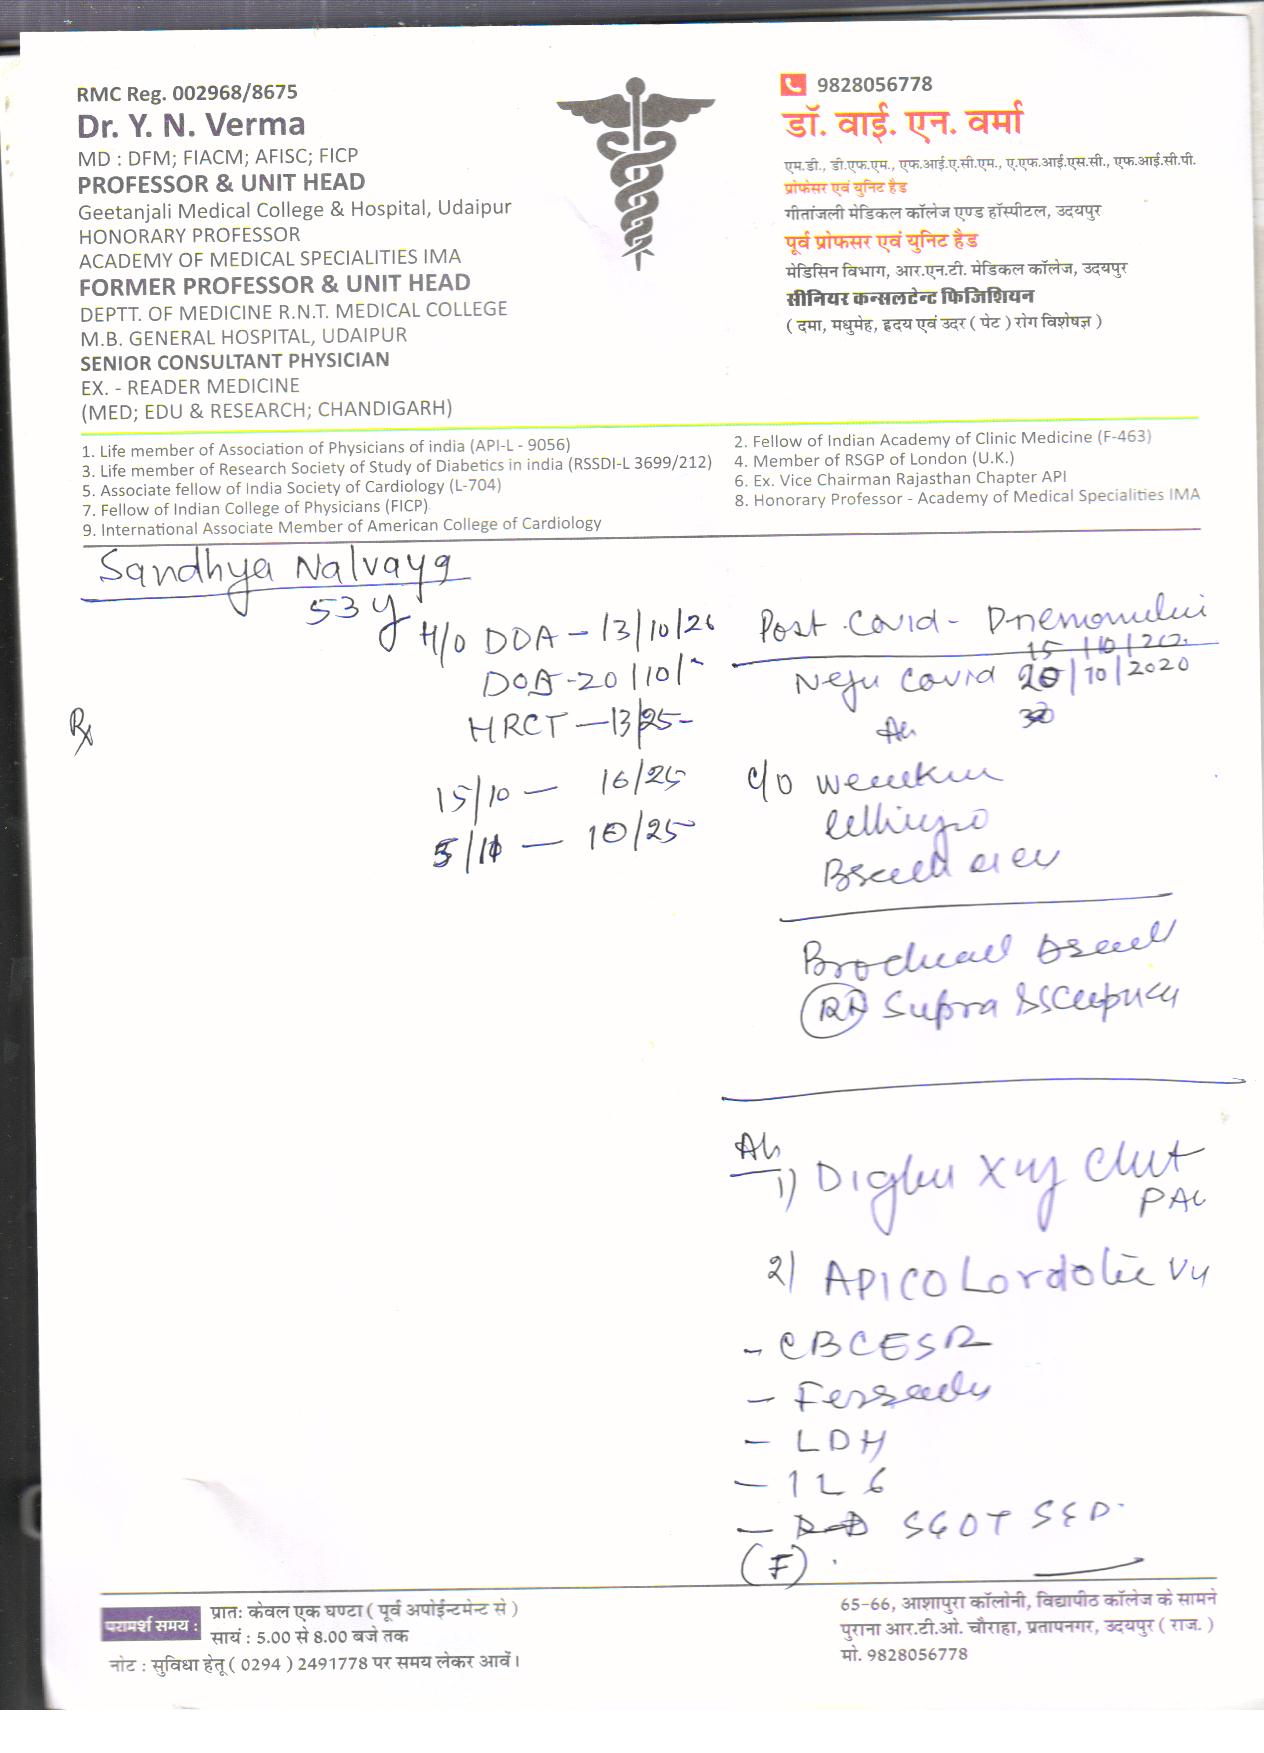 RMC Reg. 002968/8675
Dr. Y. N. Verma
MD : DFM; FIACM; AFISC; FICP
PROFESSOR & UNIT HEAD
Geetanjali Medical College & Hospital, Udaipur
HONORARY PROFESSOR
ACADEMY OF MEDICAL SPECIALITIES IMA
FORMER PROFESSOR & UNIT HEAD
DEPTT. OF MEDICINE R.N.T. MEDICAL COLLEGE
M.B. GENERAL HOSPITAL, UDAIPUR
SENIOR CONSULTANT PHYSICIAN
EX. - READER MEDICINE
(MED; EDU & RESEARCH; CHANDIGARH)
9828056778
डॉ. वाई. एन. वर्मा
एम.डी., डी.एफ.एम., एफ.आई.ए.सी.एम., ए.एफ.आई.एस.सी., एफ.आई.सी.पी.
प्रोफेसर एवं युनिट हैड
गीतांजली मेडिकल कॉलेज एण्ड हॉस्पीटल, उदयपुर
पूर्व प्रोफसर एवं युनिट हैड
मेडिसिन विभाग, आर.एन.टी. मेडिकल कॉलेज, उदयपुर
सीनियर कन्सलटेन्ट फिजिशियन
( दमा, मधुमेह, ह्रदय एवं उदर ( पेट ) रोग विशेषज्ञ )
1. Life member of Association of Physicians of india (API-L - 9056)
2. Fellow of Indian Academy of Clinic Medicine (F-463)
3. Life member of Research Society of Study of Diabetics in india (RSSDI-L 3699/212)
4. Member of RSGP of London (U.K.)
5. Associate fellow of India Society of Cardiology (L-704)
6. Ex. Vice Chairman Rajasthan Chapter API
7. Fellow of Indian College of Physicians (FICP)
8. Honorary Professor - Academy of Medical Specialities IMA
9. International Associate Member of American College of Cardiology
Sandhya Nalvaya
53 y
H/o DOA - 13/10/20
DOD - 20/10/
HRCT - 13/25
15/10 - 16/25
5/11 - 10/25
Rx
Post Covid -
15/10/202
Covid 20/10/2020
c/o
Supra
Adv
1) X Chest
PA
2) APICO Lordotic
- CBC ESR
-
- LDH
- IL 6
- SGOT
(F)
परामर्श समय :
प्रातः केवल एक घण्टा ( पूर्व अपोईन्टमेन्ट से )
सायं : 5.00 से 8.00 बजे तक
नोट : सुविधा हेतू ( 0294 ) 2491778 पर समय लेकर आवें।
65-66, आशापुरा कॉलोनी, विद्यापीठ कॉलेज के सामने
पुराना आर.टी.ओ. चौराहा, प्रतापनगर, उदयपुर ( राज. )
मो. 9828056778